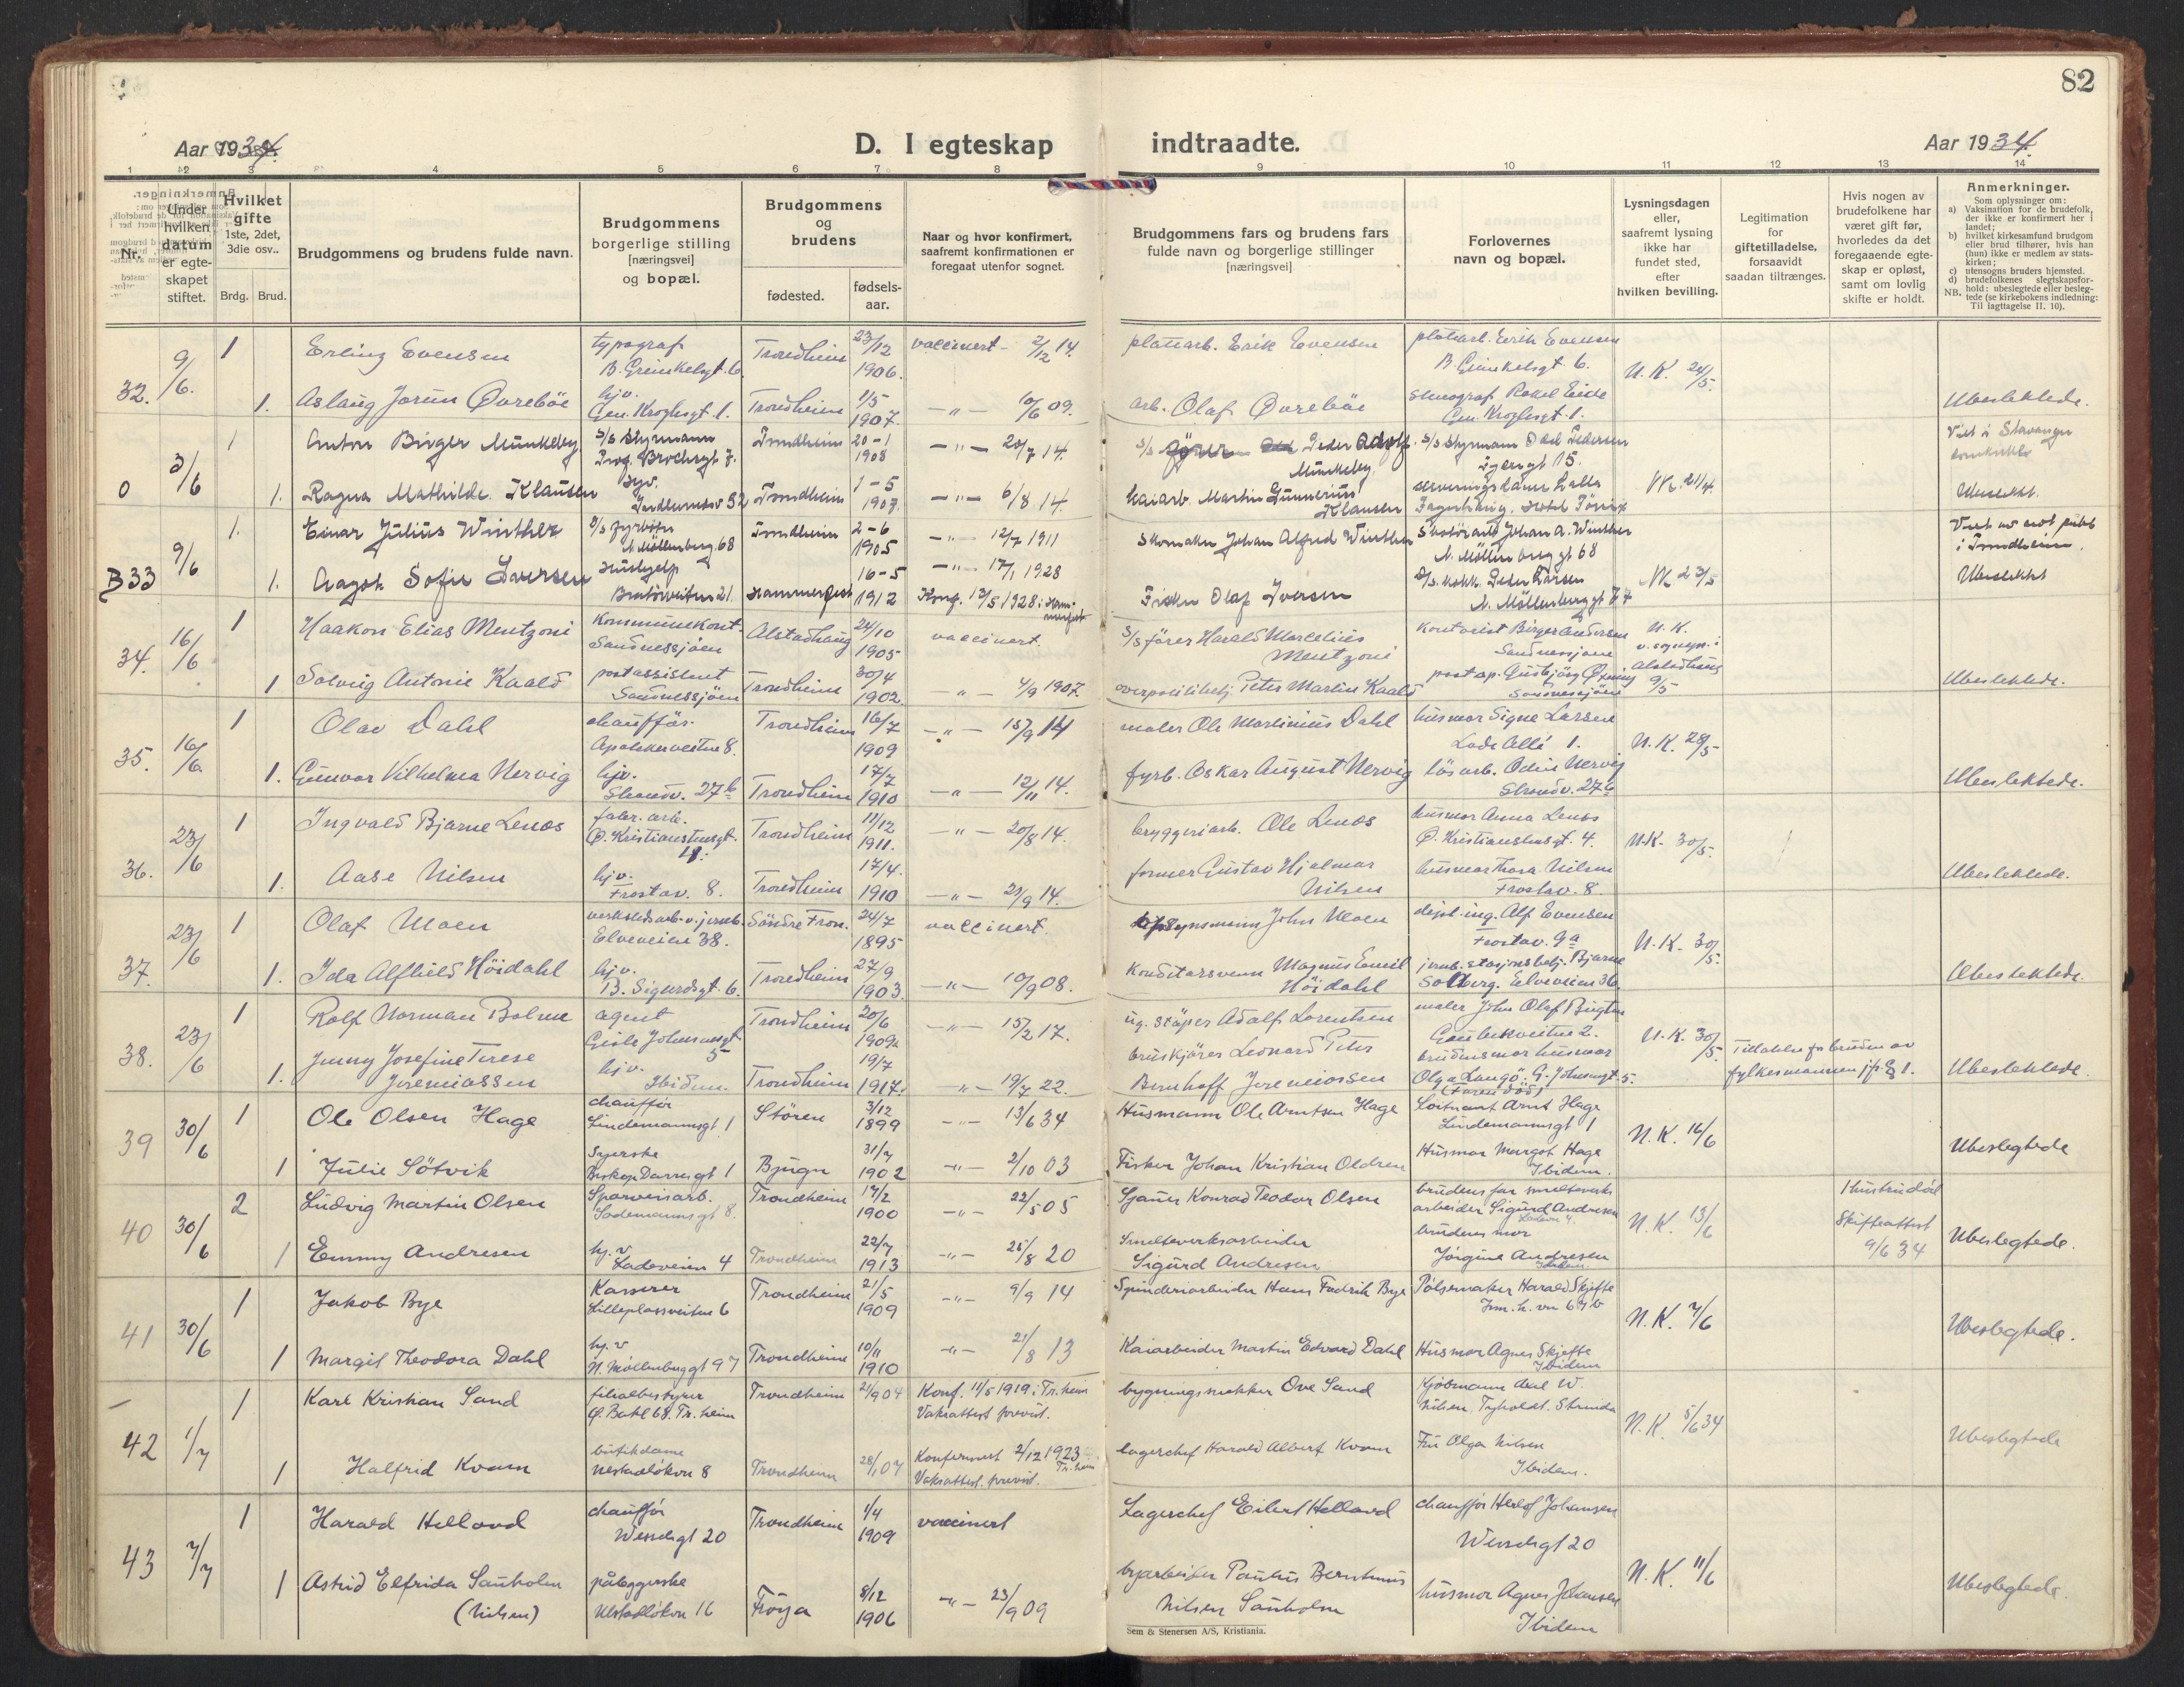 82
Aar 1934.
D. I egteskap indtraadte.
Aar 1934.
1 2 3 4 5 6 7 8 9 10 11 12 13 14
Nr.
Under hvilken datum er egteskapet stiftet.
Hvilket gifte 1ste, 2det, 3die osv..
Brdg. Brud.
Brudgommens og brudens fulde navn.
Brudgommens borgerlige stilling [næringsvei] og bopæl.
Brudgommens og brudens
fødested.
fødsels-aar.
Naar og hvor konfirmert, saafremt konfirmationen er foregaat utenfor sognet.
Brudgommens fars og brudens fars fulde navn og borgerlige stillinger [næringsvei]
Forlovernes navn og bopæl.
Lysningsdagen eller, saafremt lysning ikke har fundet sted, efter hvilken bevilling.
Legitimation for giftetilladelse, forsaavidt saadan tiltrænges.
Hvis nogen av brudefolkene har været gift før, hvorledes da det foregaaende egteskap er opløst, samt om lovlig skifte er holdt.
Anmerkninger.
Som oplysninger om:
a) Vaksination for de brudefolk, der ikke er konfirmert her i landet;
b) hvilket kirkesamfund brudgom eller brud tilhører, hvis han (hun) ikke er medlem av statskirken;
c) utensogns bruders hjemsted.
d) brudefolkenes slegtskapsforhold: ubeslegtede eller beslegtede (se kirkebokens indledning: Til Iagttagelse II. 10).
NB.
32. 9/6. 1 Erling Evensen typograf B. Grinkelsgt. 6. Trondheim 23/12 1906. vaccinert - 2/12 14. platearb. Erik Evensen platearb. Erik Evensen B. Grinkelsgt 6. N.K. 24/5.
1. Aslaug Jorun Øvrebøe hjv. Gen. Kroghsgt. 1. Trondheim 1/5 1907. -"- 10/6 09. arb. Olaf Øvrebøe stenograf Rakel Eide Gen. Kroghsgt. 1. Ubeslektede.
0 3/6 1 Anton Birger Munkeby s/s styrmann Prof. Brochsgt 7. Trondheim 20-1 1908 -"- 20/7 14. Peder Adolf Munkeby s/s styrmann Pedersen 15. 21/4. Viet i Stavanger domkirke
1. Ragna Mathilde Klausen syv. 32 Trondheim 1-5 1907 -"- 6/8 14. kaiarb. Martin Gunnerius Klausen Ubeslekt.
B33 9/6 1. Einar Julius Winther s/s fyrbøter N. Möllenberg. 68 Trondheim 2-6 1905 -"- 12/7 1911 Skomaker Johan Alfred Winther Johan A. Winther N. Möllenberg gt 68 NK 23/5 i Trondheim.
1. Aagot Sofie Iversen Hushjelp 21. Hammerfest 16-5 1912 -"- 17/1 1928 Konf. 13/5 1928 i Hammerfest Fisker Olaf Iversen s/s. kokk. Peder Larsen N. Möllenberg gt 77 Ubeslektet
34. 16/6 1 Haakon Elias Mentzoni Kommunekont. Sandnessjøen Alstadhaug 24/10 1905 vaccinert. S/s fører Harald Marcelius Mentzoni Kontorist Birger Andersen Sandnessjøen N.K. v. sognepr. i Alstadhaug 9/5
1 Solveig Antonie Kaald postassistent Sandnessjøen Trondheim 30/4 1902. -"- 4/9 1907. overpolitibetj. Peter Martin Kaald Sandnessjøen Ubeslektede.
35. 16/6. 1 Olav Dahl chauffør. Apotekerveiten 8. Trondheim 16/7 1909 -"- 15/9 14 maler Ole Martinius Dahl husmor Signe Larsen Lade Allé 1. N.K. 28/5
1. Gunvor Vilhelma Nervig hjv. Strandv. 27b Trondheim 17/7 1910 -"- 12/11 14. fyrb. Oskar August Nervig løsarb. Odin Nervig Strandv. 27b Ubeslektede.
36. 23/6 1 Ingvald Bjarne Lenes fabr. arb. Ø. Kristianstensgt. 4. Trondheim 11/12 1911. -"- 20/8 14. bryggeriarb. Ole Lenes husmor Anna Lenes Ø. Kristianstensgt. 4. N.K. 30/5.
1. Aase Nilsen hjv. Frostav. 8. Trondheim 17/4. 1910 -"- 21/9 14. former Gustav Hjalmar Nilsen husmor Thora Nilsen Frostav. 8 Ubeslektede.
37. 23/6 1 Olaf Moen verkstedsarb. v. jernb. Elveveien 38. Søndre Fron. 24/7 1895 vaccinert. John Moen dipl. ing. Alf Evensen Frostav. 9a N.K. 30/5.
1. Ida Alfhild Höidahl hjv. B. Sigurdsgt. 6. Trondheim 27/9 1903. -"- 10/9 08. Konditorsvenn Magnus Emil Höidahl jernb. stasjonsbetj. Bjarne Solberg. Elveveien 36. Ubeslektede.
38. 23/6 1 Rolf Norman Bolme agent Gisle Johnsonsgt 5 Trondheim 20/6 1909. -"- 15/2 17. ug. støper Adolf Lorentsen maler John Olaf Bugten Gaubekveiten 2. N.K. 30/5.
1. Jenny Josefine Terese Jeremiassen hjv. Ibidem. Trondheim 19/7 1917. -"- 19/7 22. bruskjører Leonard Peter Bernhoff Jeremiassen brudens mor husmor Olga Langö. G. Johnsonsgt 5. (Faren død) Tillatelse for bruden av fylkesmannen jfr. § 1. Ubeslektede.
39 30/6 1 Ole Olsen Hage chauffør Lindemannsgt 1 Støren 3/12 1899 -"- 13/6 34 Husmann Ole Arntsen Hage Løitnant Arnt Hage Lindemannsgt 1 N.K. 16/6
1 Julie Sötvik Syerske Biskop Darresgt 1 Bjugn 31/7 1902 -"- 2/10 03 Fisker Johan Kristian Oldren Husmor Margot Hage Ibidem. Ubeslegtede
40 30/6 2 Ludvig Martin Olsen Sporveisarb. Sodemannsgt 8. Trondheim 17/2 1900 -"- 22/5 05 Sjauer Konrad Teodor Olsen brudens far smelteverksarbeider Sigurd Andresen Ladevn 4. N.K. 13/6 Hustru død Skifteattest 9/6 34
1 Emmy Andresen hj. v Ladeveien 4 Trondheim 22/7 1913 -"- 25/8 20 Smelteverksarbeider Sigurd Andresen brudens mor Jørgine Andresen Ibidem Ubeslegtede.
41 30/6 1 Jakob Bye Kasserer Lilleplassveiten 6 Trondheim 21/5 1909 -"- 9/9 14 Spinderiarbeider Hans Fredrik Bye Pølsemaker Harald Skjefte Inn. h. vn 67b N.K. 7/6
1 Margit Theodora Dahl hj. v N. Møllenberggt 97 Trondheim 10/11 1910 -"- 21/8 13 Kaiarbeider Martin Edvard Dahl Husmor Agnes Skjefte Ibidem Ubeslegtede.
42 1/7 1 Karl Kristian Sand filialbestyrer Ø. Bakl 68. Tr.heim Trondheim 21/9 04 Konf. 11/5 1919 i Tr.heim Vaksattest forevist. bygningssnekker Ove Sand Kjøbmann Axel W. Nilsen, Tyholdt. Strinda N.K. 5/6 34
1 Halfrid Kvam butikdame Ulstadløkvn 8 Trondheim 28/1 07 Konfirmert 2/12 1923 Tr.heim Vaksattest. forevist. lagerchef Harald Albert Kvam Fru Olga Nilsen Ibidem. Ubeslegtede
43 7/7 1 Harald Helland chauffør Wesselsgt 20 Trondheim 1/4 1909 vaccinert Lagerchef Eilert Helland chauffør Herlof Johansen Wesselsgt 20 N.K. 11/6
1 Astrid Elfrida Sauholm (Nilsen) påleggerske Ulstadløkvn 16 Frøya 8/12 1906 -"- 23/9 09 byarbeider Paulus Berntinus Nilsen Sauholm husmor Agnes Johansen Ibidem Ubeslegtede.
Sem & Stenersen A/S, Kristiania.